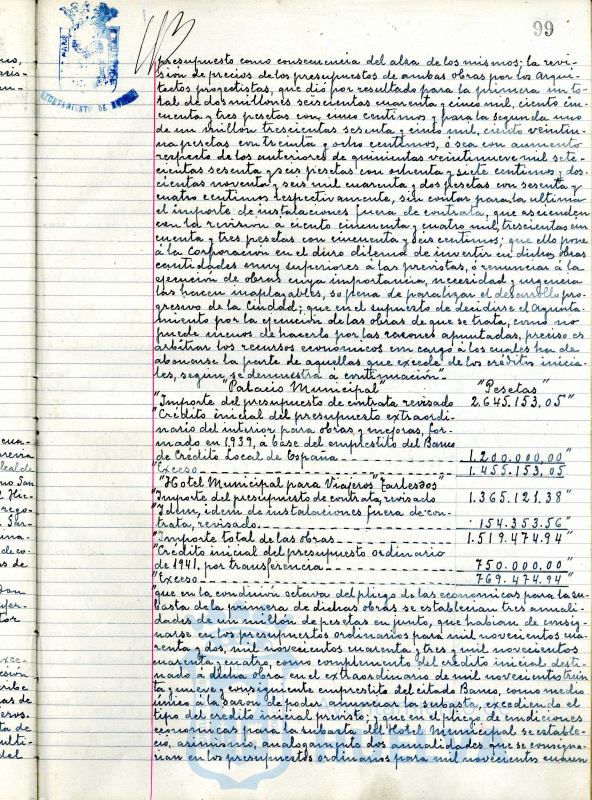 99
AYUNTAMIENTO DE HUELVA
presupuesto como consecuencia del alza de los mismos; la revi-
sion de precios de los presupuestos de ambas obras por los Arqui-
tectos proyectistas, que dió por resultado para la primera un to-
tal de dos millones seiscientas cuarenta y cinco mil, ciento cin-
cuenta y tres pesetas con cinco centimos y para la segunda uno
de un millon trescientas sesenta y cinco mil, ciento veintiu-
na pesetas con treinta y ocho centimos, ó sea con aumento
respecto de los anteriores de quinientas veintinueve mil sete-
cientas sesenta y seis pesetas con ochenta y siete centimos y dos-
cientas noventa y seis mil cuarenta y dos pesetas con sesenta y
cuatro centimos respectivamente, sin contar para la ultima
el importe de instalaciones fuera de contrata, que ascienden
con la revision á ciento cincuenta y cuatro mil, trescientas cin
cuenta y tres pesetas con cincuenta y seis centimos; que ello pone
á la Corporación en el duro dilema de invertir en dichas obras
cantidades muy superiores á las previstas, ó renunciar á la
ejecución de obras cuya importancia, necesidad y urgencia
las hacen inaplazables, so pena de paralizar el desarrollo pro-
gresivo de la Ciudad; que en el supuesto de decidirse el Ayunta-
miento por la ejecución de las obras de que se trata, como no
puede menos de hacerlo por las razones apuntadas, preciso es
arbitrar los recursos económicos con cargo á los cuales ha de
abonarse la parte de aquellas que excede de los créditos inicia-
les, según se demuestra á continuación".
"Palacio Municipal" "Pesetas"
"Importe del presupuesto de contrata revisado 2.645.153,05"
"Crédito inicial del presupuesto extraordi-
nario del interior para obras y mejoras, for-
mado en 1.939, á base del emprestito del Banco
de Crédito Local de España 1.200.000,00"
"Exceso 1.445.153,05
"Hotel Municipal para Viajeros "Tartessos"
"Importe del presupuesto de contrata, revisado 1.365.121.38"
"Idem, idem de instalaciones fuera de con-
trata, revisado. 154.353.56"
"Importe total de las obras 1.519.474.94"
"Crédito inicial del presupuesto ordinario
de 1941, por transferencia 750.000.00"
"Exceso 769.474.94"
"que en la condición octava del pliego de las economicas para la su-
basta de la primera de dichas obras se establecian tres anuali-
dades de un millón de pesetas en junto, que habian de consig-
narse en los presupuestos ordinarios para mil novecientos cua-
renta y dos, mil novecientos cuarenta y tres y mil novecientos
cuarenta y cuatro, como complemento del credito inicial desti-
nado á dicha obra en el extraordinario de mil novecientos trein
ta y nueve y consiguiente emprestito del citado Banco, como medio
único á la sazon de poder anunciar la subasta, excediendo el
tipo del credito inicial previsto; y que en el pliego de condiciones
economicas para la subasta del Hotel Municipal se estable-
ció, asimismo, analogamente dos anualidades que se consigna-
rian en los presupuestos ordinarios para mil novecientos cuaren